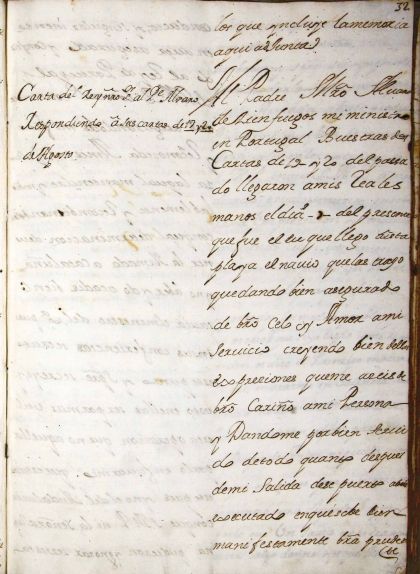 32
los que yncluye la memoria
aqui adjunta.
Carta del Rey nro Sr. al Pe Alvaro
Respondiendo à sus cartas de 12 y 20
de Agosto
Al Padre Mtro Alvaro
de Cienfuegos mi ministro
en Portugal Buestras dos
Cartas de 12 y 20 del passa
do llegaron a mis Reales
manos el dia 2 del presente
que fue el en que llego à esta
playa el navio que las trajo
quedando bien asegurado
de bro Celo y Amor a mi
servicio creyendo bien de las
expresiones que me aceis de
bro Cariño a mi Persona
y Dandome por bien servi
do de todo quanto despues
de mi Salida de ese puerto abeis
executado en que se be bien
manifestamente bra pruden